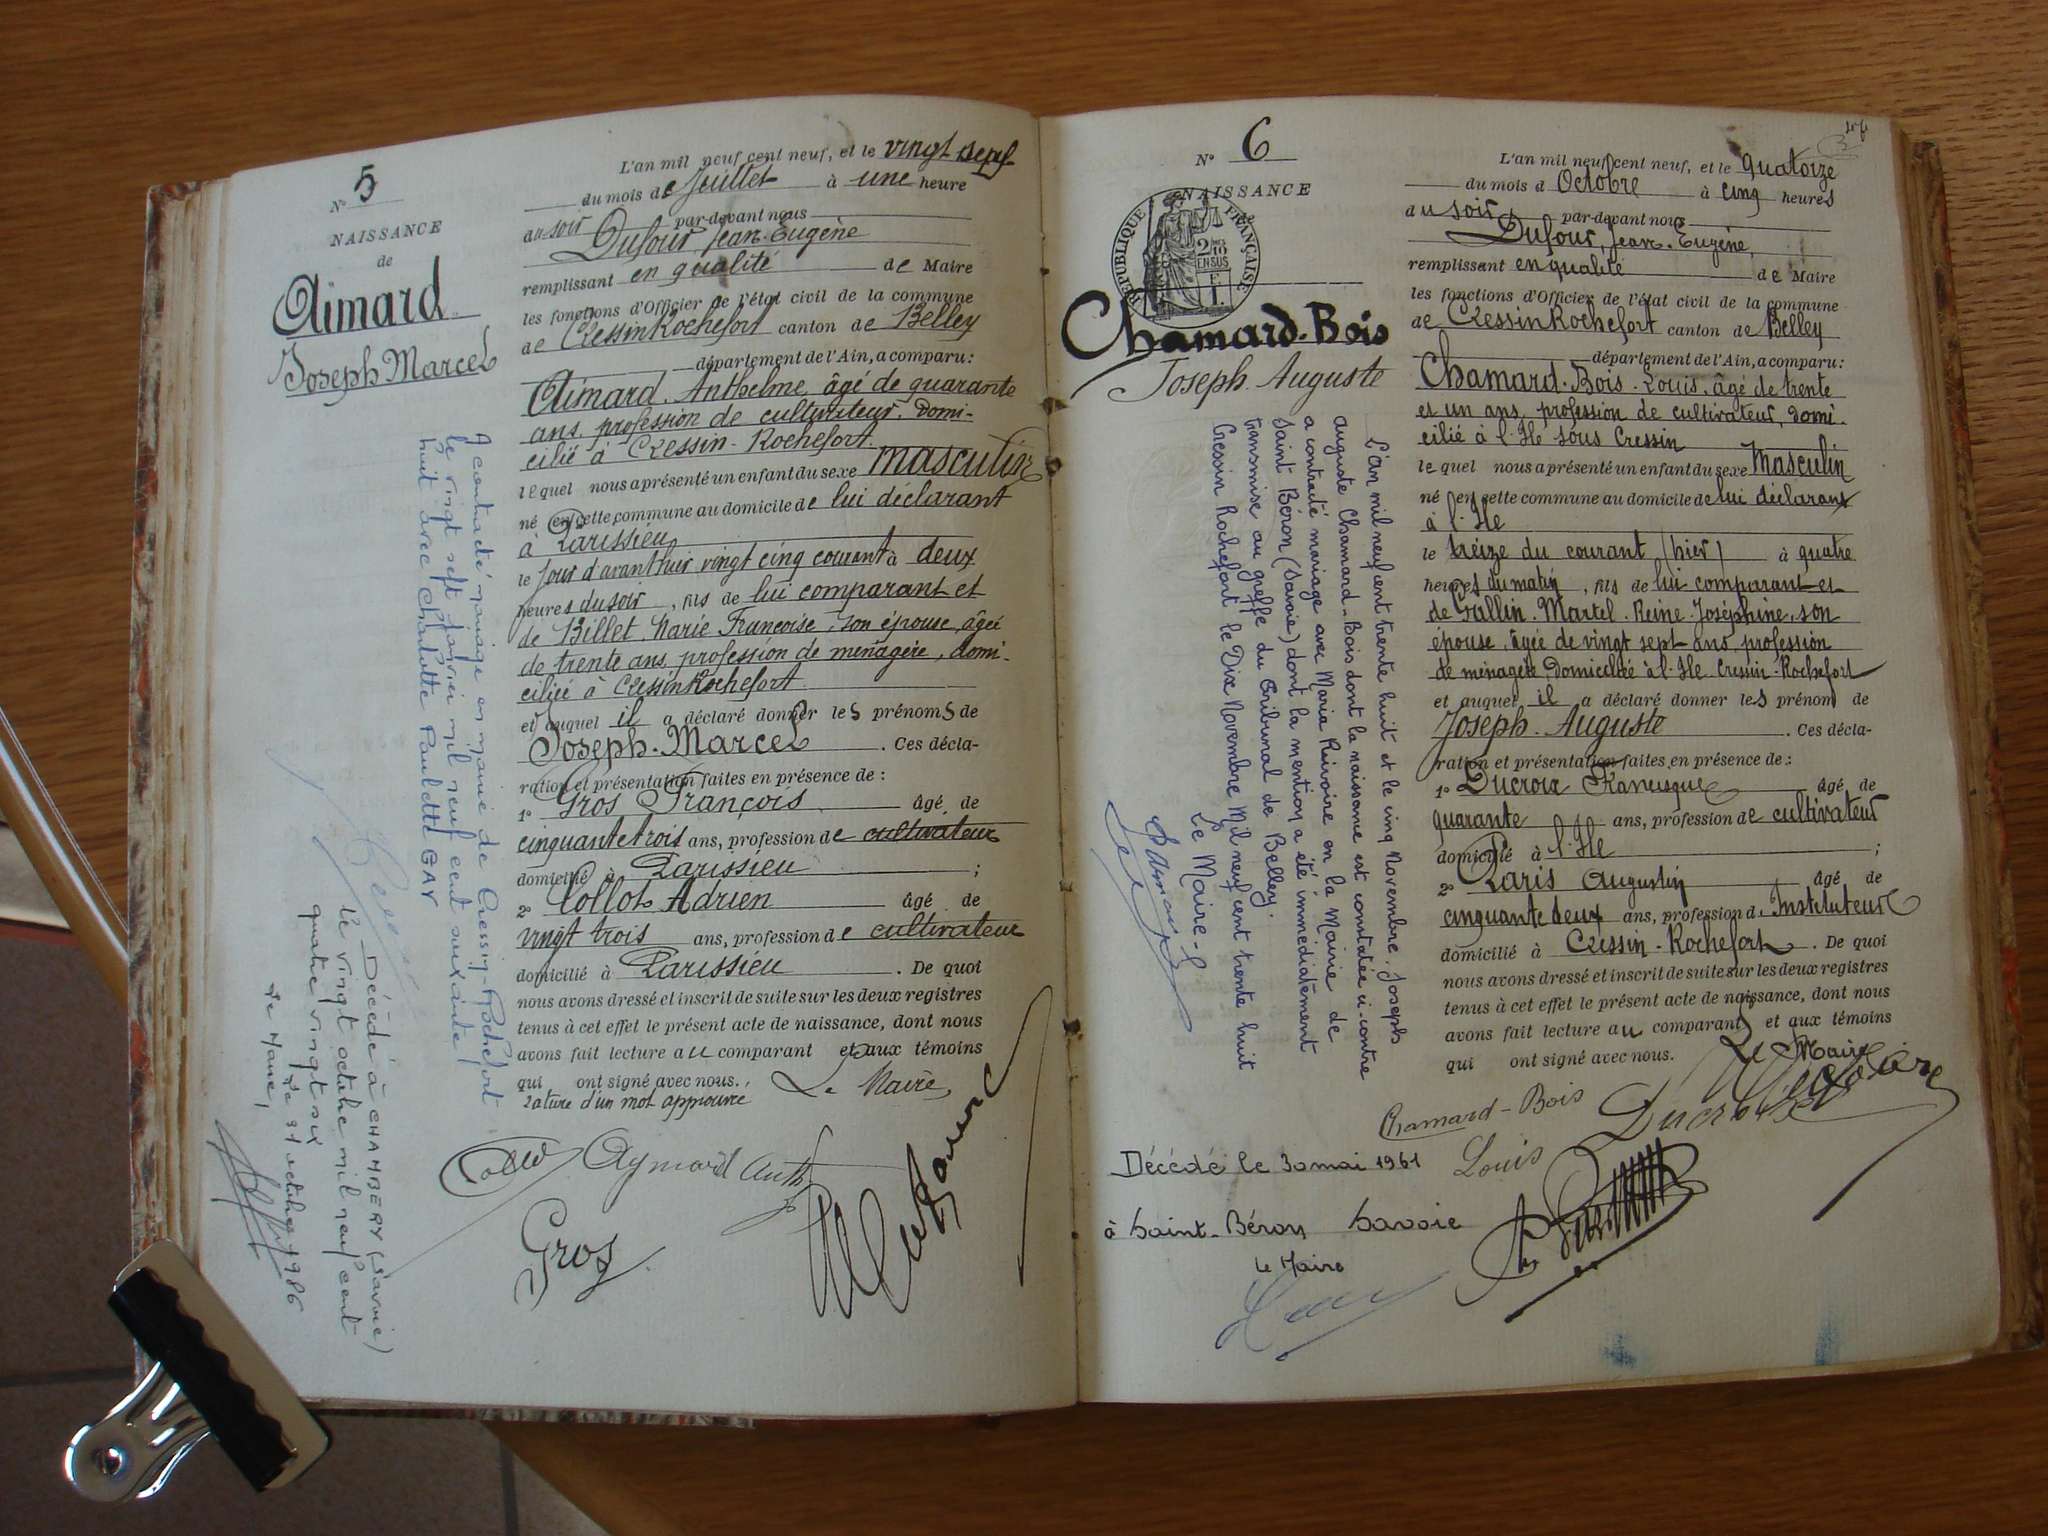 N° 5
NAISSANCE
de
Aimard
Joseph Marcel
A contracté mariage en mairie de Cressin-Rochefort
le vingt sept janvier mil neuf cent soixante
huit avec Charlotte Paulette GAY
Décédé à CHAMBERY (Savoie)
le vingt octobre mil neuf cent
quatre vingt six
Le 21 octobre 1986
Le Maire,
L'an mil neuf cent neuf, et le vingt sept
du mois de Juillet à une heure
au soir par-devant nous
Dufour Jean-Eugène
remplissant en qualité de Maire
les fonctions d'Officier de l'état civil de la commune
de Cressin Rochefort canton de Belley
département de l'Ain, a comparu :
Aimard Anthelme, âgé de quarante
ans, profession de cultivateur, domi-
cilié à Cressin-Rochefort
lequel nous a présenté un enfant du sexe masculin
né en cette commune au domicile de lui déclarant
à Parissieu
le jour d'avant hier vingt cinq courant à deux
heures du soir, fils de lui comparant et
de Billet Marie Françoise, son épouse, âgée
de trente ans, profession de ménagère, domi-
ciliée à Cressin Rochefort
et auquel il a déclaré donner les prénoms de
Joseph-Marcel. Ces décla-
ration et présentation faites en présence de :
1° Gros François âgé de
cinquante trois ans, profession de cultivateur
domicilié à Parissieu ;
2° Collot Adrien âgé de
vingt trois ans, profession de cultivateur
domicilié à Parissieu. De quoi
nous avons dressé et inscrit de suite sur les deux registres
tenus à cet effet le présent acte de naissance, dont nous
avons fait lecture au comparant et aux témoins
qui ont signé avec nous.
rature d'un mot approuvée Le Maire,
Aymard Anth
Gros
N° 6
NAISSANCE
RÉPUBLIQUE FRANÇAISE
2/10 EN SUS
Chamard-Bois
Joseph Auguste
L'an mil neuf cent trente huit et le cinq Novembre, Joseph
auguste Chamard-Bois dont la naissance est constatée ci-contre
a contracté mariage avec Maria Rivoire en la Mairie de
Saint Béron (Savoie) dont la mention a été immédiatement
transmise au greffe du Tribunal de Belley.
Cressin Rochefort le Dix Novembre Mil neuf cent trente huit
Le Maire
Décédé le 30 mai 1961
à Saint-Béron Savoie
Le Maire
L'an mil neuf cent neuf, et le quatorze
du mois d Octobre à cinq heures
au soir par-devant nous
Dufour, Jean-Eugène,
remplissant en qualité de Maire
les fonctions d'Officier de l'état civil de la commune
de Cressin Rochefort canton de Belley
département de l'Ain, a comparu :
Chamard-Bois-Louis, âgé de trente
et un ans, profession de cultivateur, domi-
cilié à l'Ile sous Cressin
lequel nous a présenté un enfant du sexe Masculin
né en cette commune au domicile de lui déclarant
à l'Ile
le treize du courant (hier) à quatre
heures du matin, fils de lui comparant et
de Gallin-Martel-Reine-Joséphine, son
épouse, âgée de vingt sept ans, profession
de ménagère Domiciliée à l'Ile Cressin-Rochefort
et auquel il a déclaré donner les prénom de
Joseph-Auguste. Ces décla-
ration et présentation faites en présence de :
1° Ducroix Francisque âgé de
quarante ans, profession de cultivateur
domicilié à l'Ile ;
2° Paris Augustin âgé de
cinquante deux ans, profession d Instituteur
domicilié à Cressin-Rochefort. De quoi
nous avons dressé et inscrit de suite sur les deux registres
tenus à cet effet le présent acte de naissance, dont nous
avons fait lecture au comparant et aux témoins
qui ont signé avec nous. Le Maire
Chamard-Bois
Louis